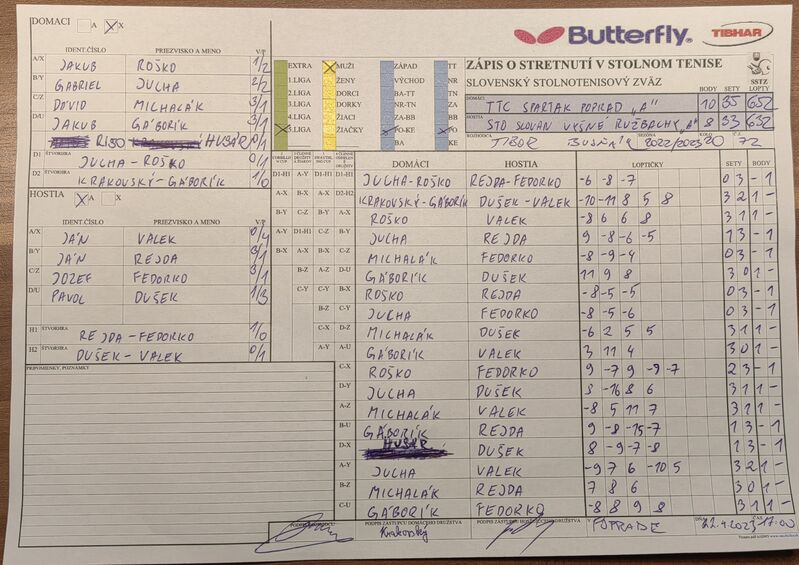 DOMACI A X
Butterfly. TIBHAR
IDENT.ČÍSLO PRIEZVISKO A MENO V/P
A/X JAKUB ROŠKO 1/2
B/Y GABRIEL JUCHA 2/2
C/Z DÁVID MICHALÁK 3/1
D/U JAKUB GÁBORÍK 3/1
HUSÁR 0/1
D1 ŠTVORHRA JUCHA-ROŠKO 0/1
D2 ŠTVORHRA KRAKOVSKÝ-GÁBORÍK 1/0
HOSTIA A X
IDENT.ČÍSLO PRIEZVISKO A MENO V/P
A/X JÁN VALEK 0/4
B/Y JÁN REJDA 3/1
C/Z JOZEF FEDORKO 3/1
D/U PAVOL DUŠEK 1/3
H1 ŠTVORHRA REJDA-FEDORKO 1/0
H2 ŠTVORHRA DUŠEK-VALEK 0/1
PRIPOMIENKY, POZNÁMKY
EXTRA MUŽI ZÁPAD TT
1.LIGA ŽENY VÝCHOD NR
2.LIGA DORCI BA-TT TN
3.LIGA DORKY NR-TN ZA
4.LIGA ŽIACI ZA-BB BB
5.LIGA ŽIAČKY PO-KE PO
BA KE
ZÁPIS O STRETNUTÍ V STOLNOM TENISE
SLOVENSKÝ STOLNOTENISOVÝ ZVÄZ SSTZ
BODY SETY LOPTY
DOMÁCI TTC SPARTAK POPRAD "A" 10 35 652
HOSTIA STO SLOVAN VYŠNÉ RUŽBACHY "A" 8 33 652
ROZHODCA TIBOR SEZÓNA 2022/2023 KOLO 20 Č.Z. 72
DOMÁCI HOSTIA LOPTIČKY SETY BODY
D1-H1 A-Y D1-H1 D1-H1 JUCHA-ROŠKO REJDA-FEDORKO -6 -8 -7 0 3 - 1
A-X B-X A-X D2-H2 KRAKOVSKÝ-GÁBORÍK DUŠEK-VALEK -10 -11 8 5 8 3 2 1 -
B-Y C-Z B-Y A-X ROŠKO VALEK -8 6 6 8 3 1 1 -
A-Y D1-H1 C-Z B-Y JUCHA REJDA 9 -8 -6 -5 1 3 - 1
B-X A-X B-X C-Z MICHALÁK FEDORKO -8 -9 -4 0 3 - 1
B-Z A-Z D-U GÁBORÍK DUŠEK 11 9 8 3 0 1 -
C-Y C-Y B-X ROŠKO REJDA -8 -5 -5 0 3 - 1
B-Z C-Y JUCHA FEDORKO -8 -5 -6 0 3 - 1
C-X D-Z MICHALÁK DUŠEK -6 2 5 5 3 1 1 -
A-Y A-U GÁBORÍK VALEK 3 11 4 3 0 1 -
C-X ROŠKO FEDORKO 9 -7 9 -9 -7 2 3 - 1
D-Y JUCHA DUŠEK 8 -16 8 6 3 1 1 -
A-Z MICHALÁK VALEK -8 5 11 7 3 1 1 -
B-U GÁBORÍK REJDA 9 -8 -15 -7 1 3 - 1
D-X HUSÁR DUŠEK 8 -9 -7 -8 1 3 - 1
A-Y JUCHA VALEK -9 7 6 -10 5 3 2 1 -
B-Z MICHALÁK REJDA 7 8 6 3 0 1 -
C-U GÁBORÍK FEDORKO -8 8 9 8 3 1 1 -
PODPIS ROZHODCU PODPIS ZÁSTUPCU DOMÁCEHO DRUŽSTVA PODPIS ZÁSTUPCU HOSŤUJÚCEHO DRUŽSTVA V DŇA ČAS
Krakovský POPRADE 22.4.2023 17:00